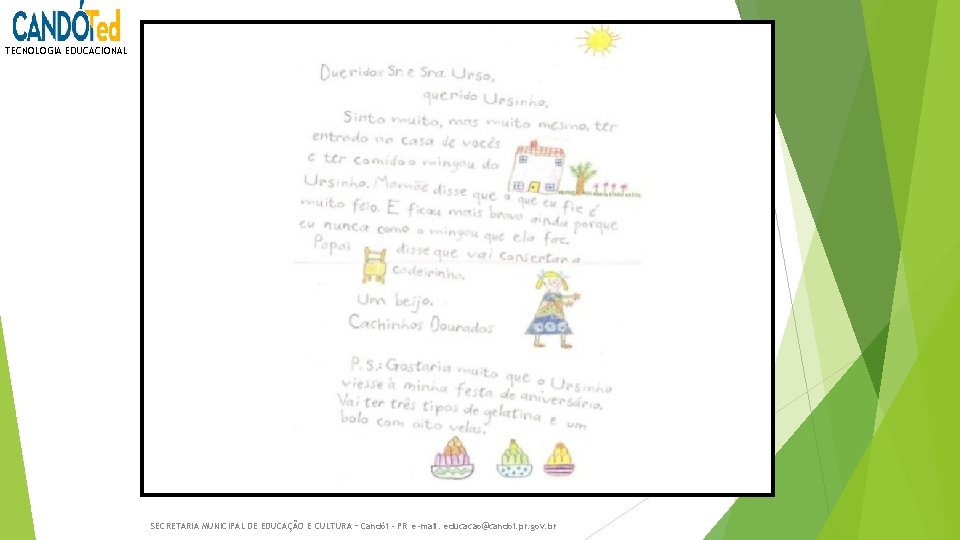 CANDÓITed
TECNOLOGIA EDUCACIONAL
Queridos Sr. e Sra Urso,
querido Ursinho,
Sinto muito, mas muito mesmo, ter
entrado na casa de vocês
e ter comido o mingau do
Ursinho. Mamãe disse que o que eu fiz é
muito feio. E ficou mais brava ainda porque
eu nunca como o mingau que ela faz.
Papai disse que vai consertar a
cadeirinha.
Um beijo,
Cachinhos Dourados
P.S.: Gostaria muito que o Ursinho
viesse à minha festa de aniversário.
Vai ter três tipos de gelatina e um
bolo com oito velas.
SECRETARIA MUNICIPAL DE EDUCAÇÃO E CULTURA – Candói - PR e-mail. educacao@candoi.pr.gov.br